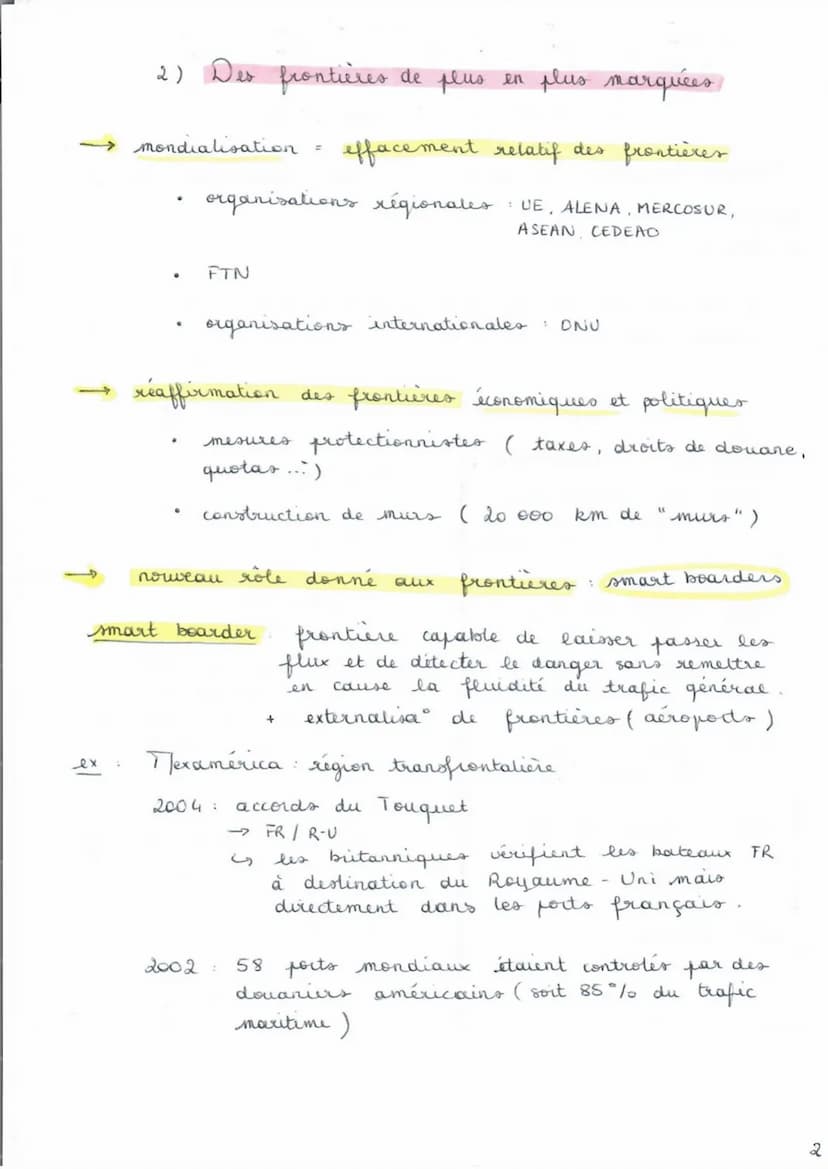 2) Des frontières de plus en plus marquées
→ mondialisation = effacement relatif des frontières
• organisations régionales : UE, ALENA, MERCOSUR,
ASEAN, CEDEAO
• FTN
• organisations internationales : ONU
→ réaffirmation des frontières économiques et politiques
• mesures protectionnistes ( taxes, droits de douane,
quotas ... )
• construction de murs ( 20 000 km de "murs" )
→ nouveau rôle donné aux frontières : smart boarders
smart boarder : frontière capable de laisser passer les
flux et de détecter le danger sans remettre
en cause la fluidité du trafic général.
+ externalisa° de frontières ( aéroports )
ex : Mexamérica : région transfrontalière
2004 : accords du Touquet
→ FR / R-U
↳ les britanniques vérifient les bateaux FR
à destination du Royaume-Uni mais
directement dans les ports français.
2002 : 58 ports mondiaux étaient controlés par des
douaniers américains ( soit 85% du trafic
maritime )
2